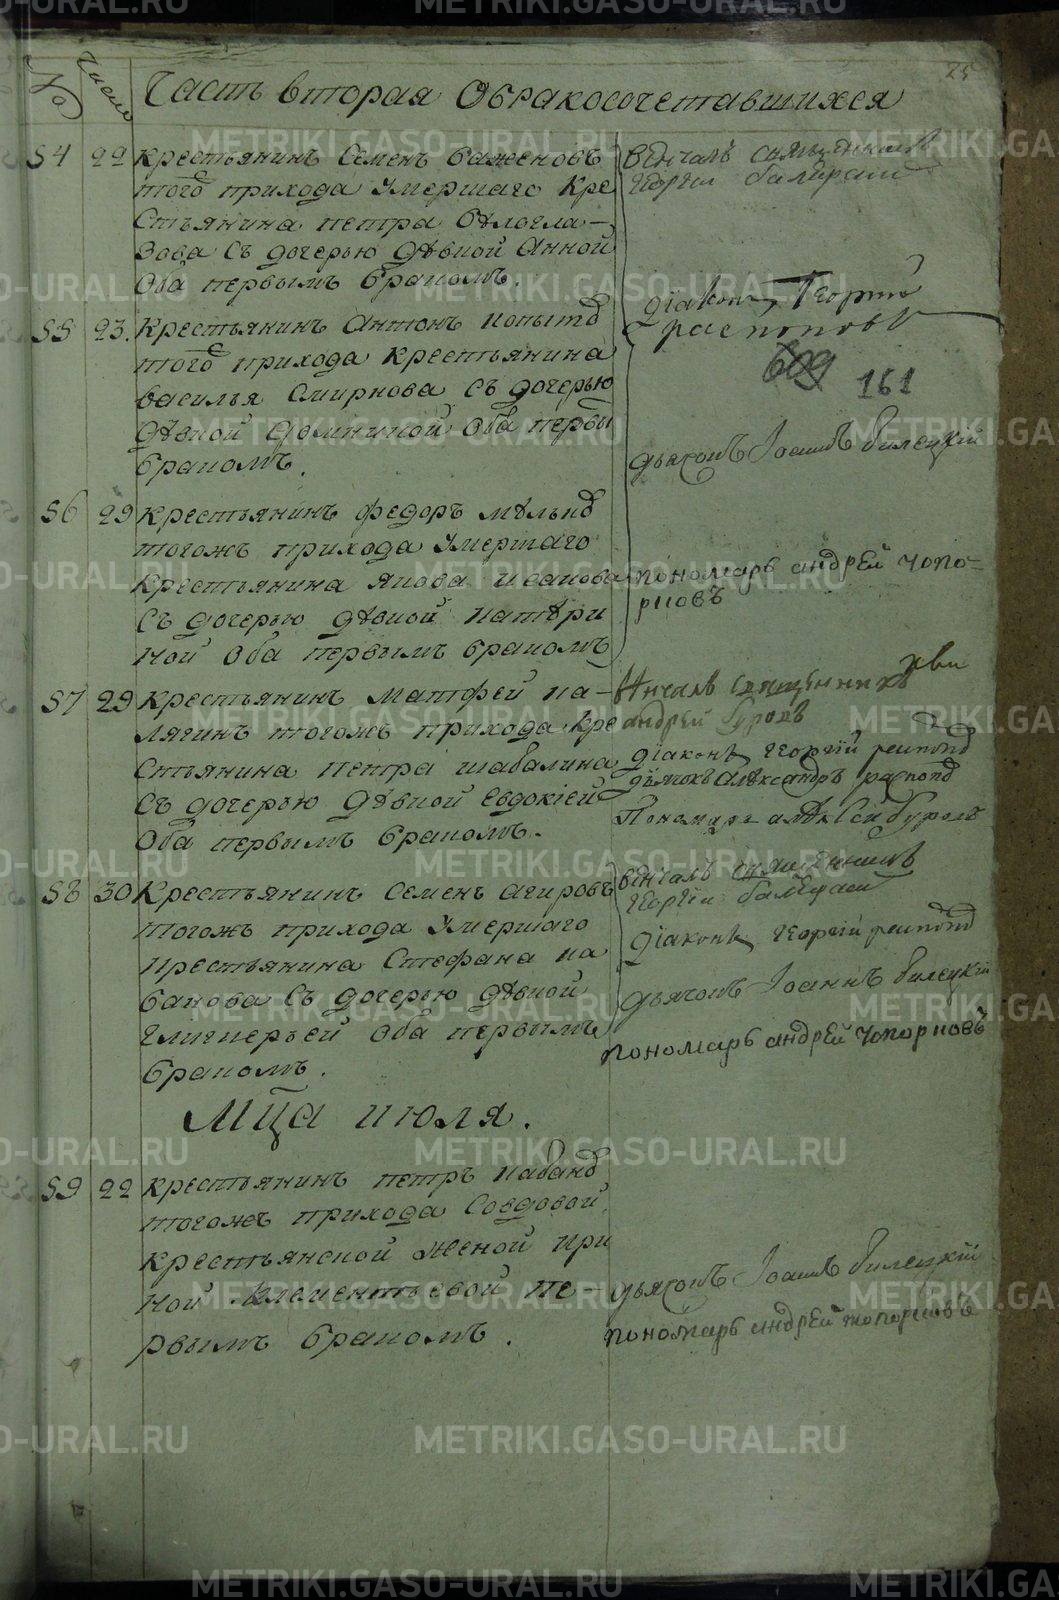 25
№ Число Часть вторая Обракосочетавшихся
54 22 крестьянинъ Семенъ Баженовъ
того прихода умершаго кре
стьянина петра Бѣлогла-
зова съ дочерью дѣвкой Анной
оба первымъ бракомъ.
Вѣнчалъ священникъ
Георгии
55 23. крестьянинъ Антонъ
того прихода крестьянина
василья Смирнова съ дочерью
дѣвкой домникой оба первы
бракомъ.
Діаконъ Георгий
распоповъ
609 161
дьячокъ Іоаннъ Билецкій
56 29 крестьянинъ федоръ
тогожъ прихода умершаго
крестьянина якова исакова
съ дочерью дѣвкой катѣри
ной оба первымъ бракомъ
пономарь андрей чопо-
рновъ
57 29 крестьянинъ матфей ка-
лягинъ тогожъ прихода кре
стьянина петра шабалина
съ дочерью дѣвкой Евдокіей
оба первымъ бракомъ.
священникъ
андрей Буровъ
діаконъ Георгій
дьячокъ Александръ
Пономарь алѣксей буровъ
58 30 Крестьянинъ Семенъ агировъ
тогожъ прихода умершаго
крестьянина Стефана ка
банова съ дочерью дѣвкой
гликерьей оба первымъ
бракомъ.
вѣнчалъ священникъ
Георгіи
Діаконъ Георгій
дьячокъ Іоаннъ Билецкій
пономарь андрей чопорновъ
Мца июля.
59 22 крестьянинъ петръ
тогожъ прихода совдовой
крестьянской женой ири
ной Клементьевой пе-
рвымъ бракомъ.
дьячокъ Іоаннъ Билецкій
пономарь андрей чопорновъ
METRIKI.GASO-URAL.RU